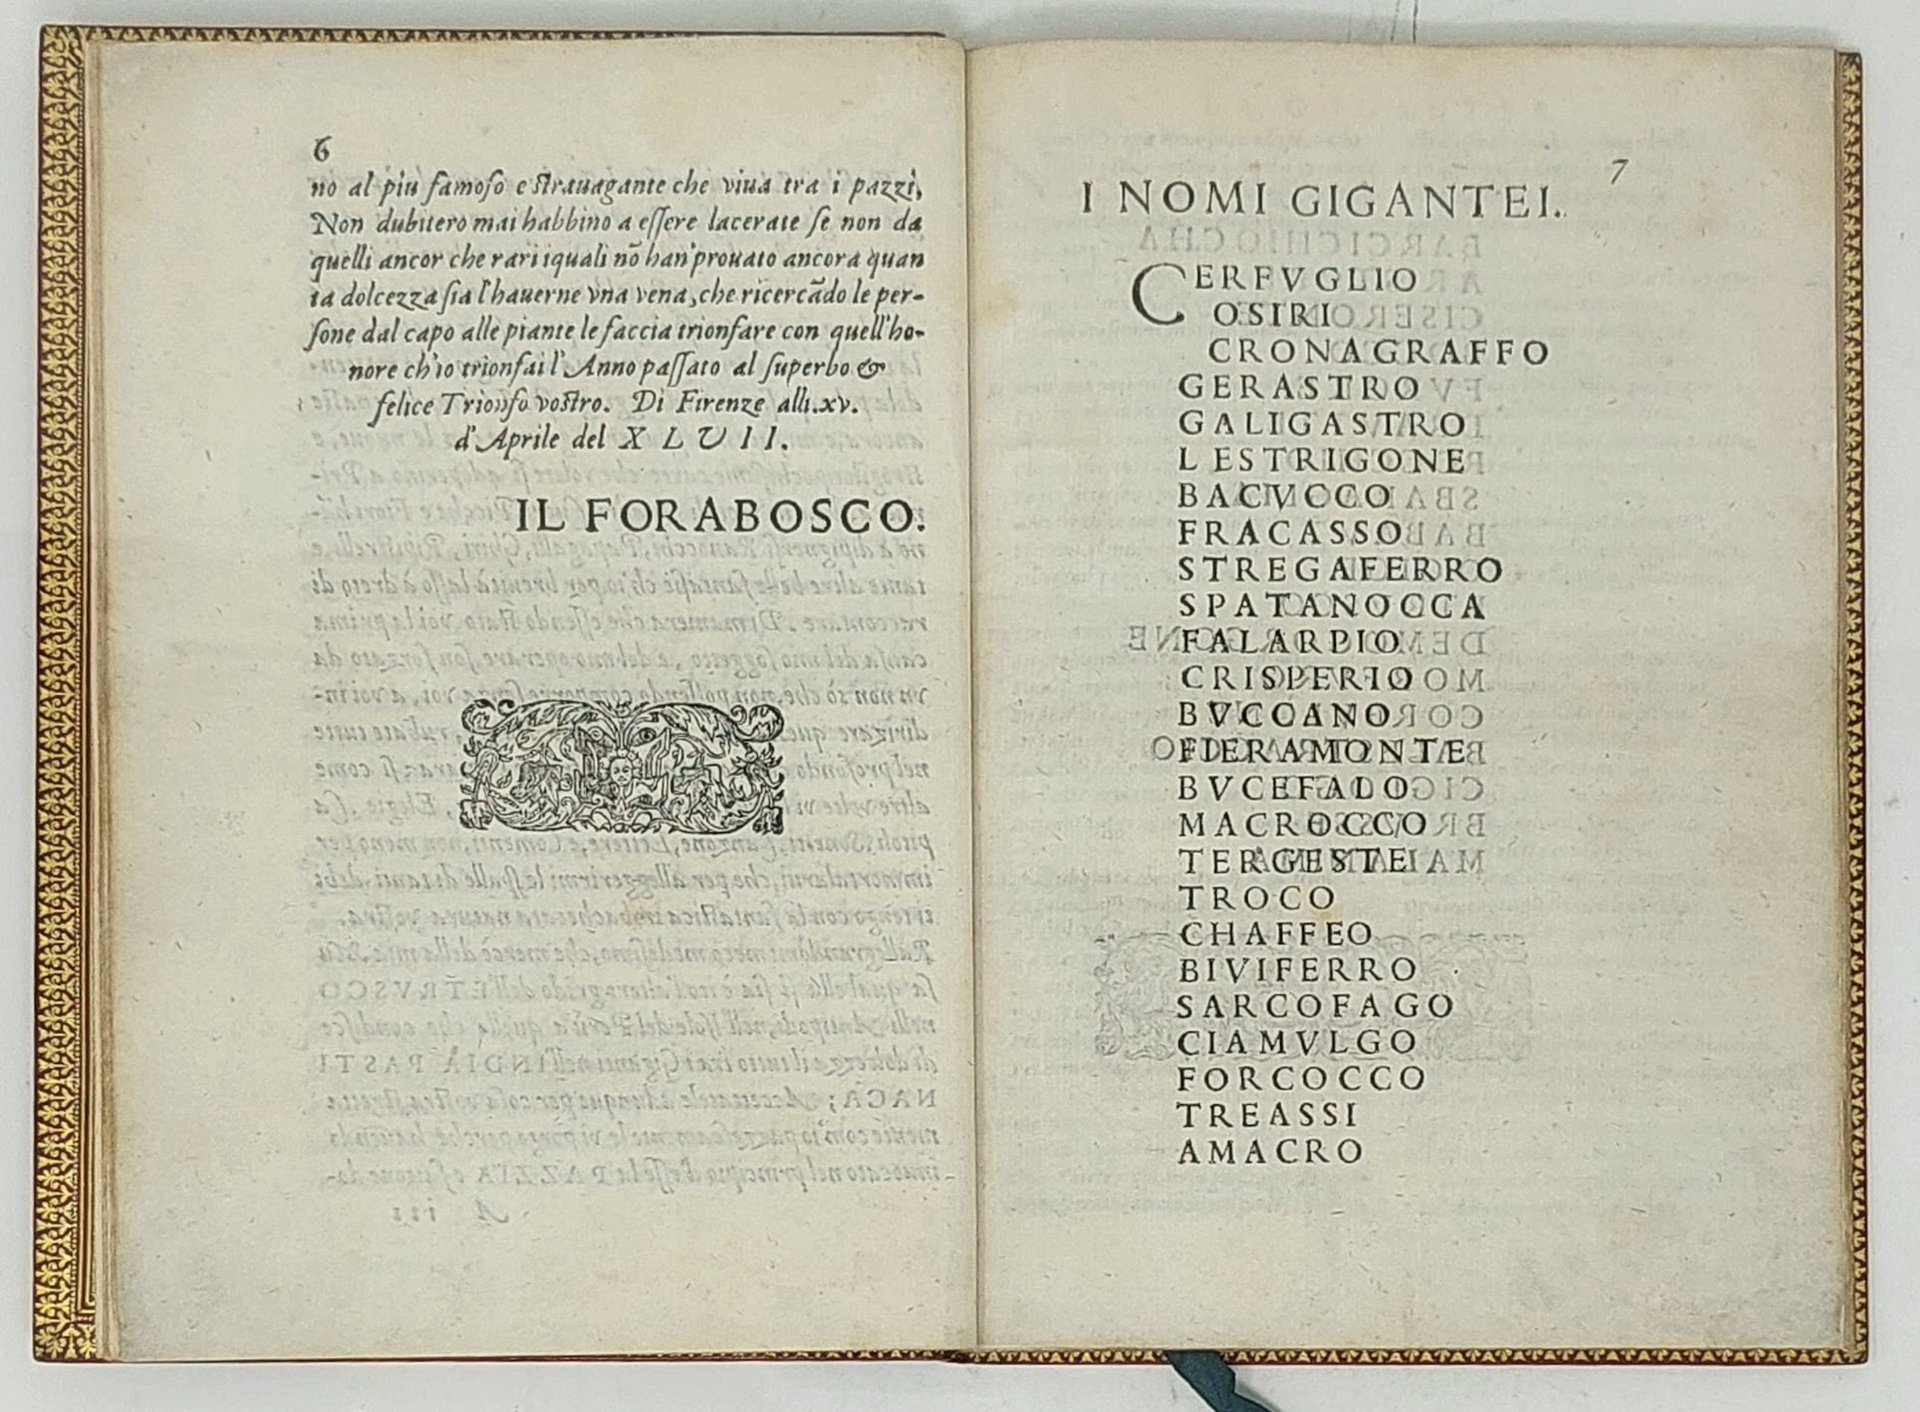 6
no al piu famoso e strauagante che viua tra i pazzi,
Non dubitero mai habbino a essere lacerate se non da
quelli ancor che rari iquali nō han' prouato ancora quan
ta dolcezza sia l'hauerne vna vena, che ricercādo le per-
sone dal capo alle piante le faccia trionfare con quell'ho-
nore ch'io trionfai l'Anno passato al superbo &
felice Trionfo vostro. Di Firenze alli.xv.
d'Aprile del XLVII.
IL FORABOSCO.
7
I NOMI GIGANTEI.
CERFVGLIO
OSIRI
CRONAGRAFFO
GERASTRO
GALIGASTRO
LESTRIGONE
BACVCCO
FRACASSO
STREGAFERRO
SPATANOCCA
FALARPIO
CRISPERIO
BVCCANO
FIERAMONTE
BVCEFALO
MACROCCO
TERGESTE
TROCO
CHAFFEO
BIVIFERRO
SARCOFAGO
CIAMVLGO
FORCOCCO
TREASSI
AMACRO